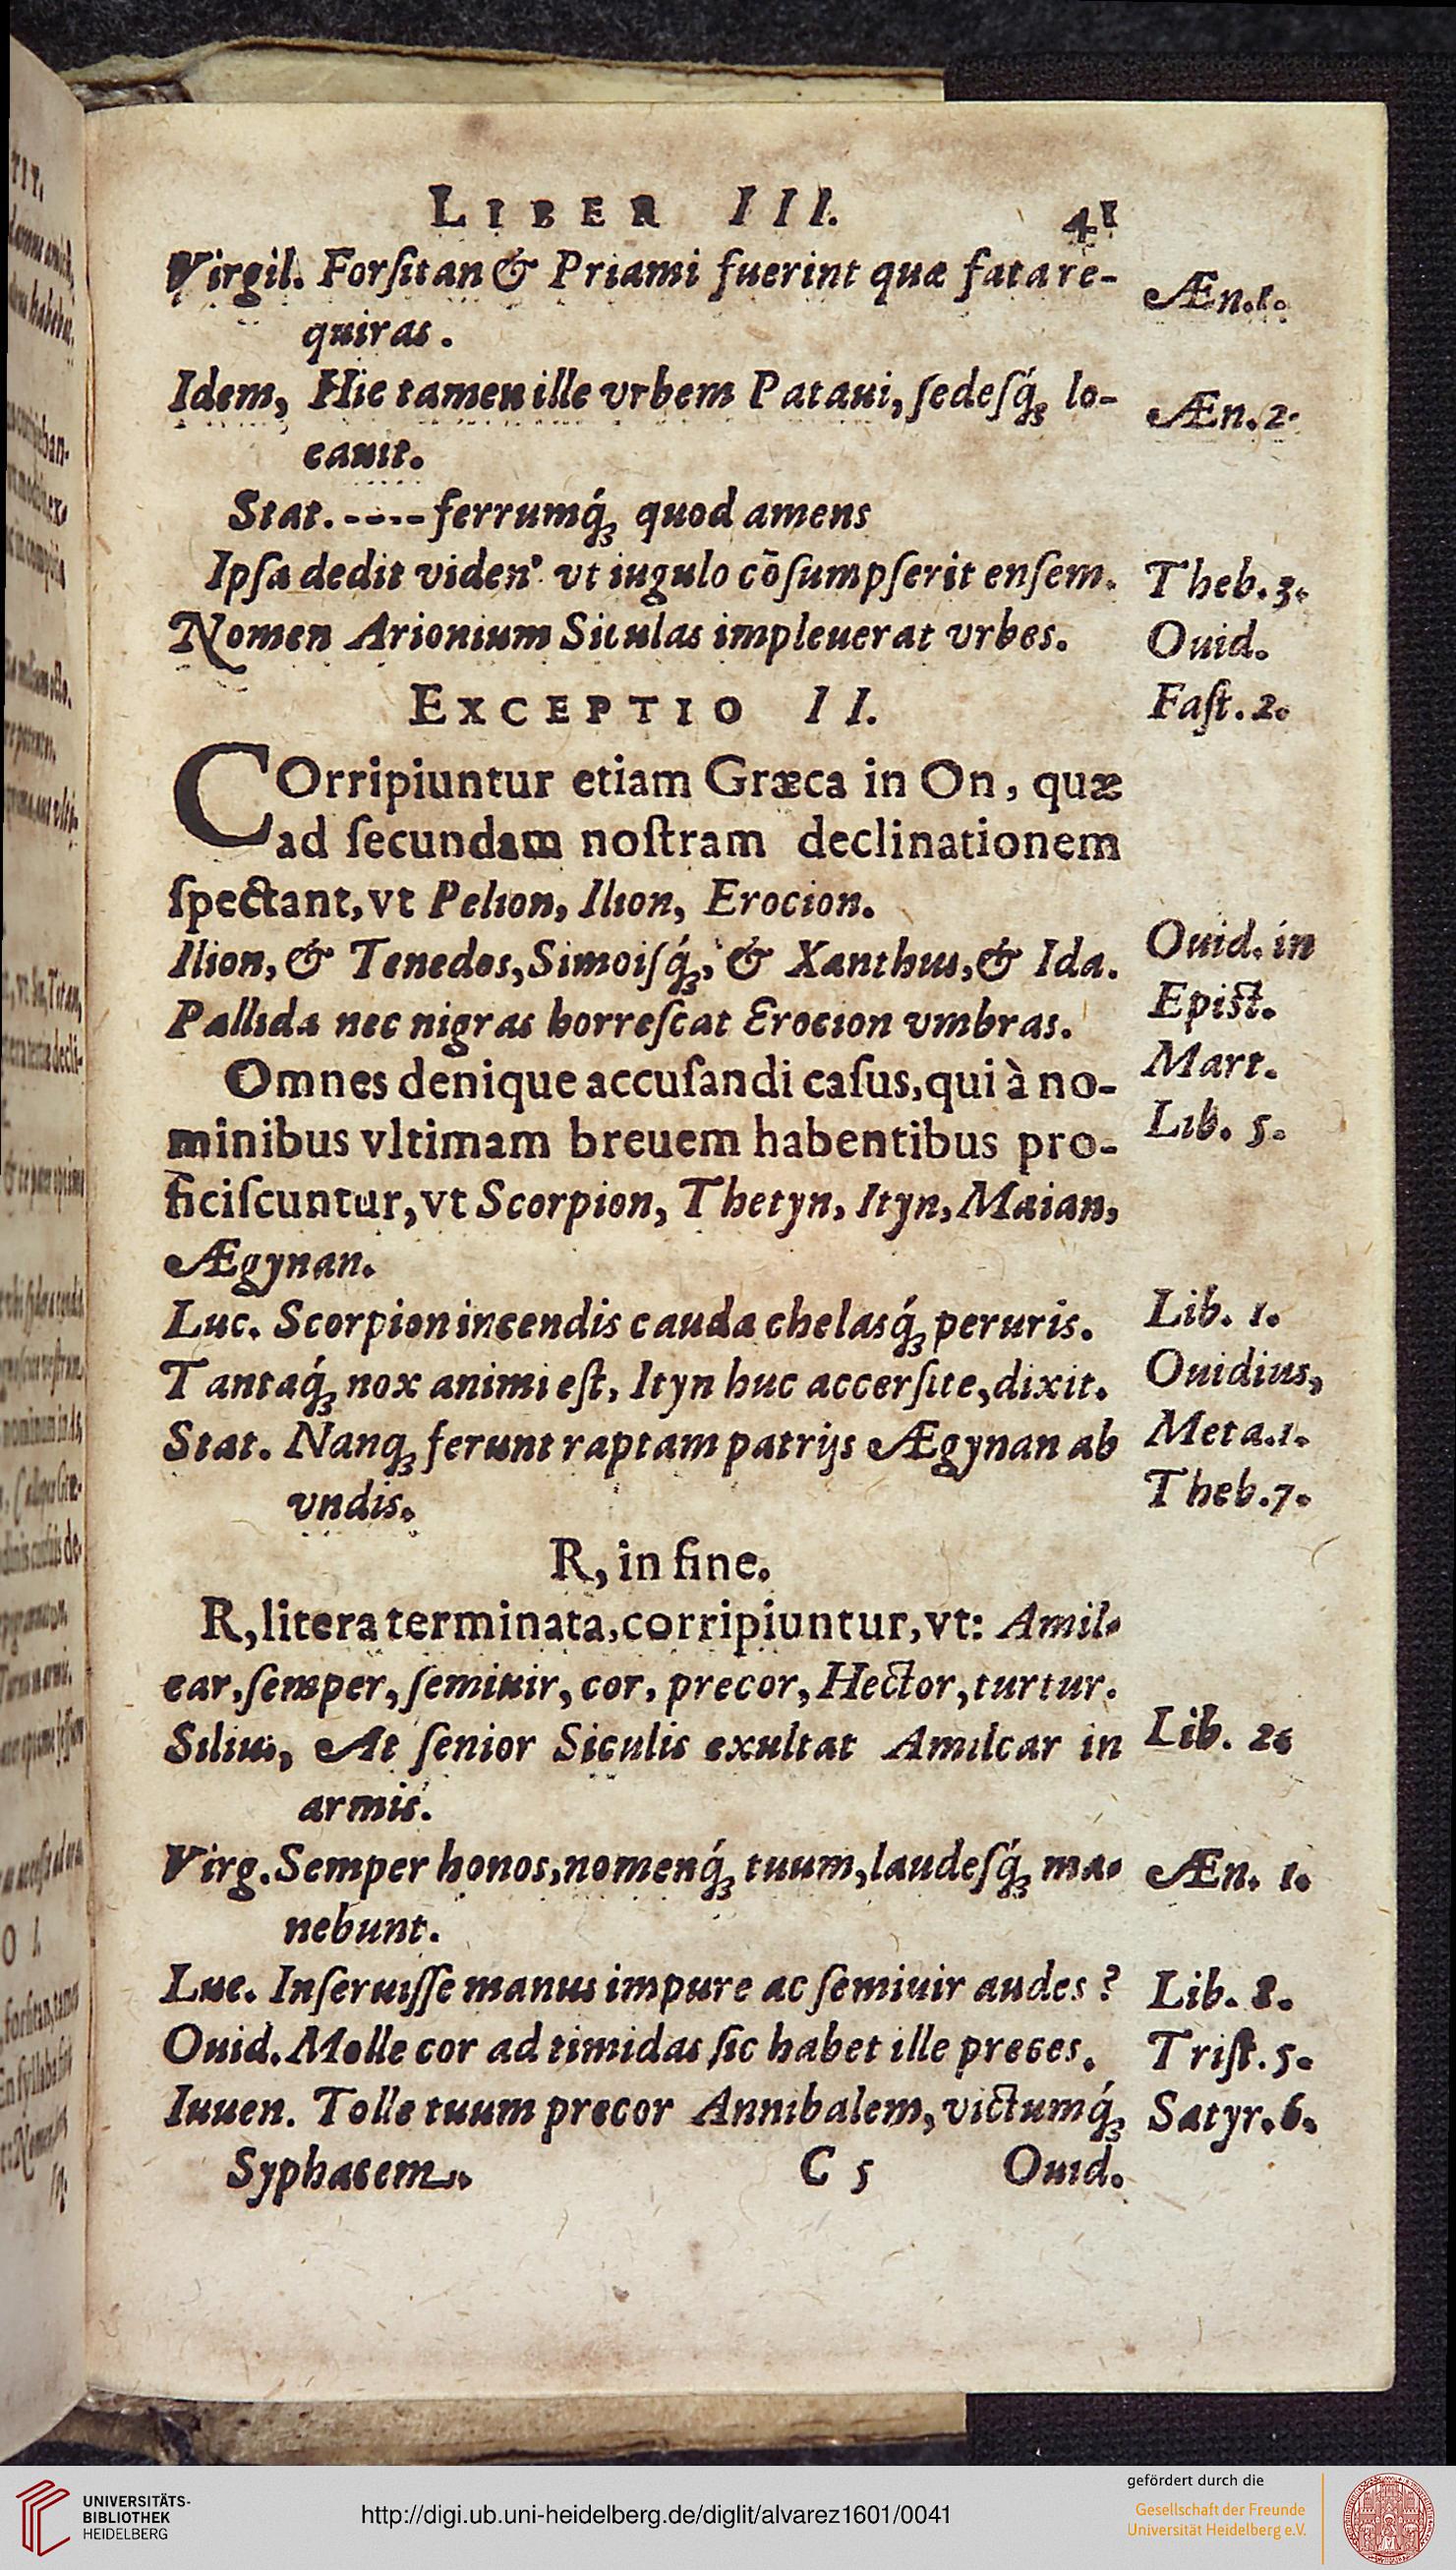 LIBER III. 41
Virgil. Forſitan & Priami fuerint quæ fata re- Æn.1.
quiras.
Idem, Hic tamen ille vrbem Pataui, ſedeſq́ꝫ lo- Æn.2.
cauit.
Stat. ---- ferrumq́ꝫ quod amens
Ipſa dedit viden' vt iugulo cōſumpſerit enſem. Theb.3.
Nomen Arionium Siculas impleuerat vrbes. Ouid.
EXCEPTIO II. Faſt.2.
COrripiuntur etiam Græca in On, quæ
ad ſecundam noſtram declinationem
ſpectant, vt Pelion, Ilion, Erocion.
Ilion, & Tenedos, Simoiſq́ꝫ, & Xanthus, & Ida. Ouid. in
Pallida nec nigras horreſcat Erocion vmbras. Epiſt.
Omnes denique accuſandi caſus, qui à no- Mart.
minibus vltimam breuem habentibus pro- Lib. 5.
ficiſcuntur, vt Scorpion, Thetyn, Ityn, Maian,
Ægynan.
Luc. Scorpion incendis cauda chelasq́ꝫ peruris. Lib. 1.
Tantaq́ꝫ nox animi eſt, Ityn huc accerſite, dixit. Ouidius,
Stat. Nanqꝫ ferunt raptam patrijs Ægynan ab Meta.1.
vndis. Theb.7.
R, in fine.
R, litera terminata, corripiuntur, vt: Amil-
car, ſemper, ſemiuir, cor, precor, Hector, turtur.
Silius, At ſenior Siculis exultat Amilcar in Lib. 2
armis.
Virg. Semper honos, nomenq́ꝫ tuum, laudeſq́ꝫ ma- Æn. 1.
nebunt.
Luc. Inſeruiſſe manus impure ac ſemiuir audes? Lib. 8.
Ouid. Molle cor ad timidas ſic habet ille preces. Triſt.5.
Iuuen. Tolle tuum precor Annibalem, victumq́ꝫ Satyr.6.
Syphacem. C 5 Ouid.
UNIVERSITÄTS-
BIBLIOTHEK
HEIDELBERG
http://digi.ub.uni-heidelberg.de/diglit/alvarez1601/0041
gefördert durch die
Gesellschaft der Freunde
Universität Heidelberg e.V.